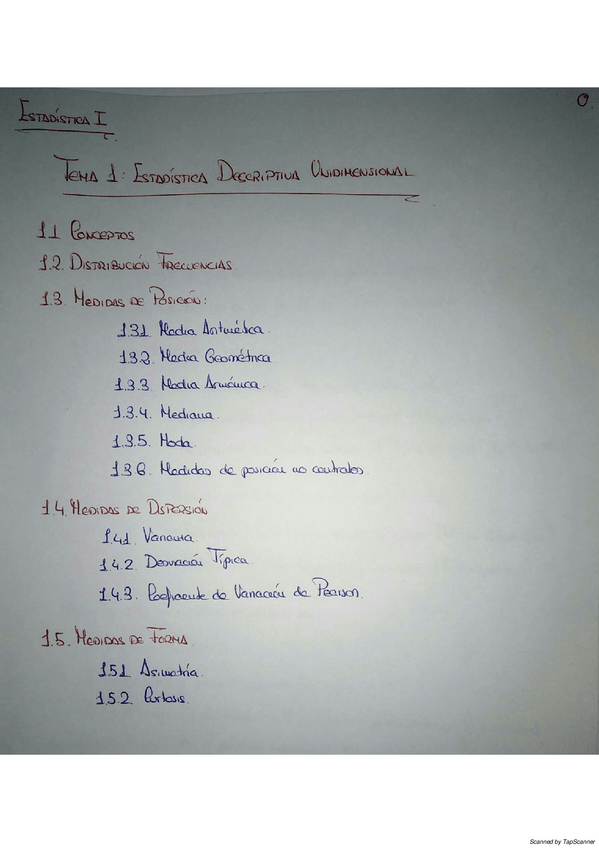 0.
ESTADÍSTICA I
TEMA 1: ESTADÍSTICA DESCRIPTIVA UNIDIMENSIONAL
1.1 CONCEPTOS
1.2. DISTRIBUCIÓN FRECUENCIAS
1.3. MEDIDAS DE POSICIÓN:
1.3.1. Media Aritmética.
1.3.2. Media Geométrica
1.3.3. Media Armónica.
1.3.4. Mediana.
1.3.5. Moda.
1.3.6. Medidas de posición no centrales.
1.4. MEDIDAS DE DISPERSIÓN
1.4.1. Varianza.
1.4.2. Desviación Típica.
1.4.3. Coeficiente de Variación de Pearson.
1.5. MEDIDAS DE FORMA
1.5.1. Asimetría.
1.5.2. Curtosis.
Scanned by TapScanner